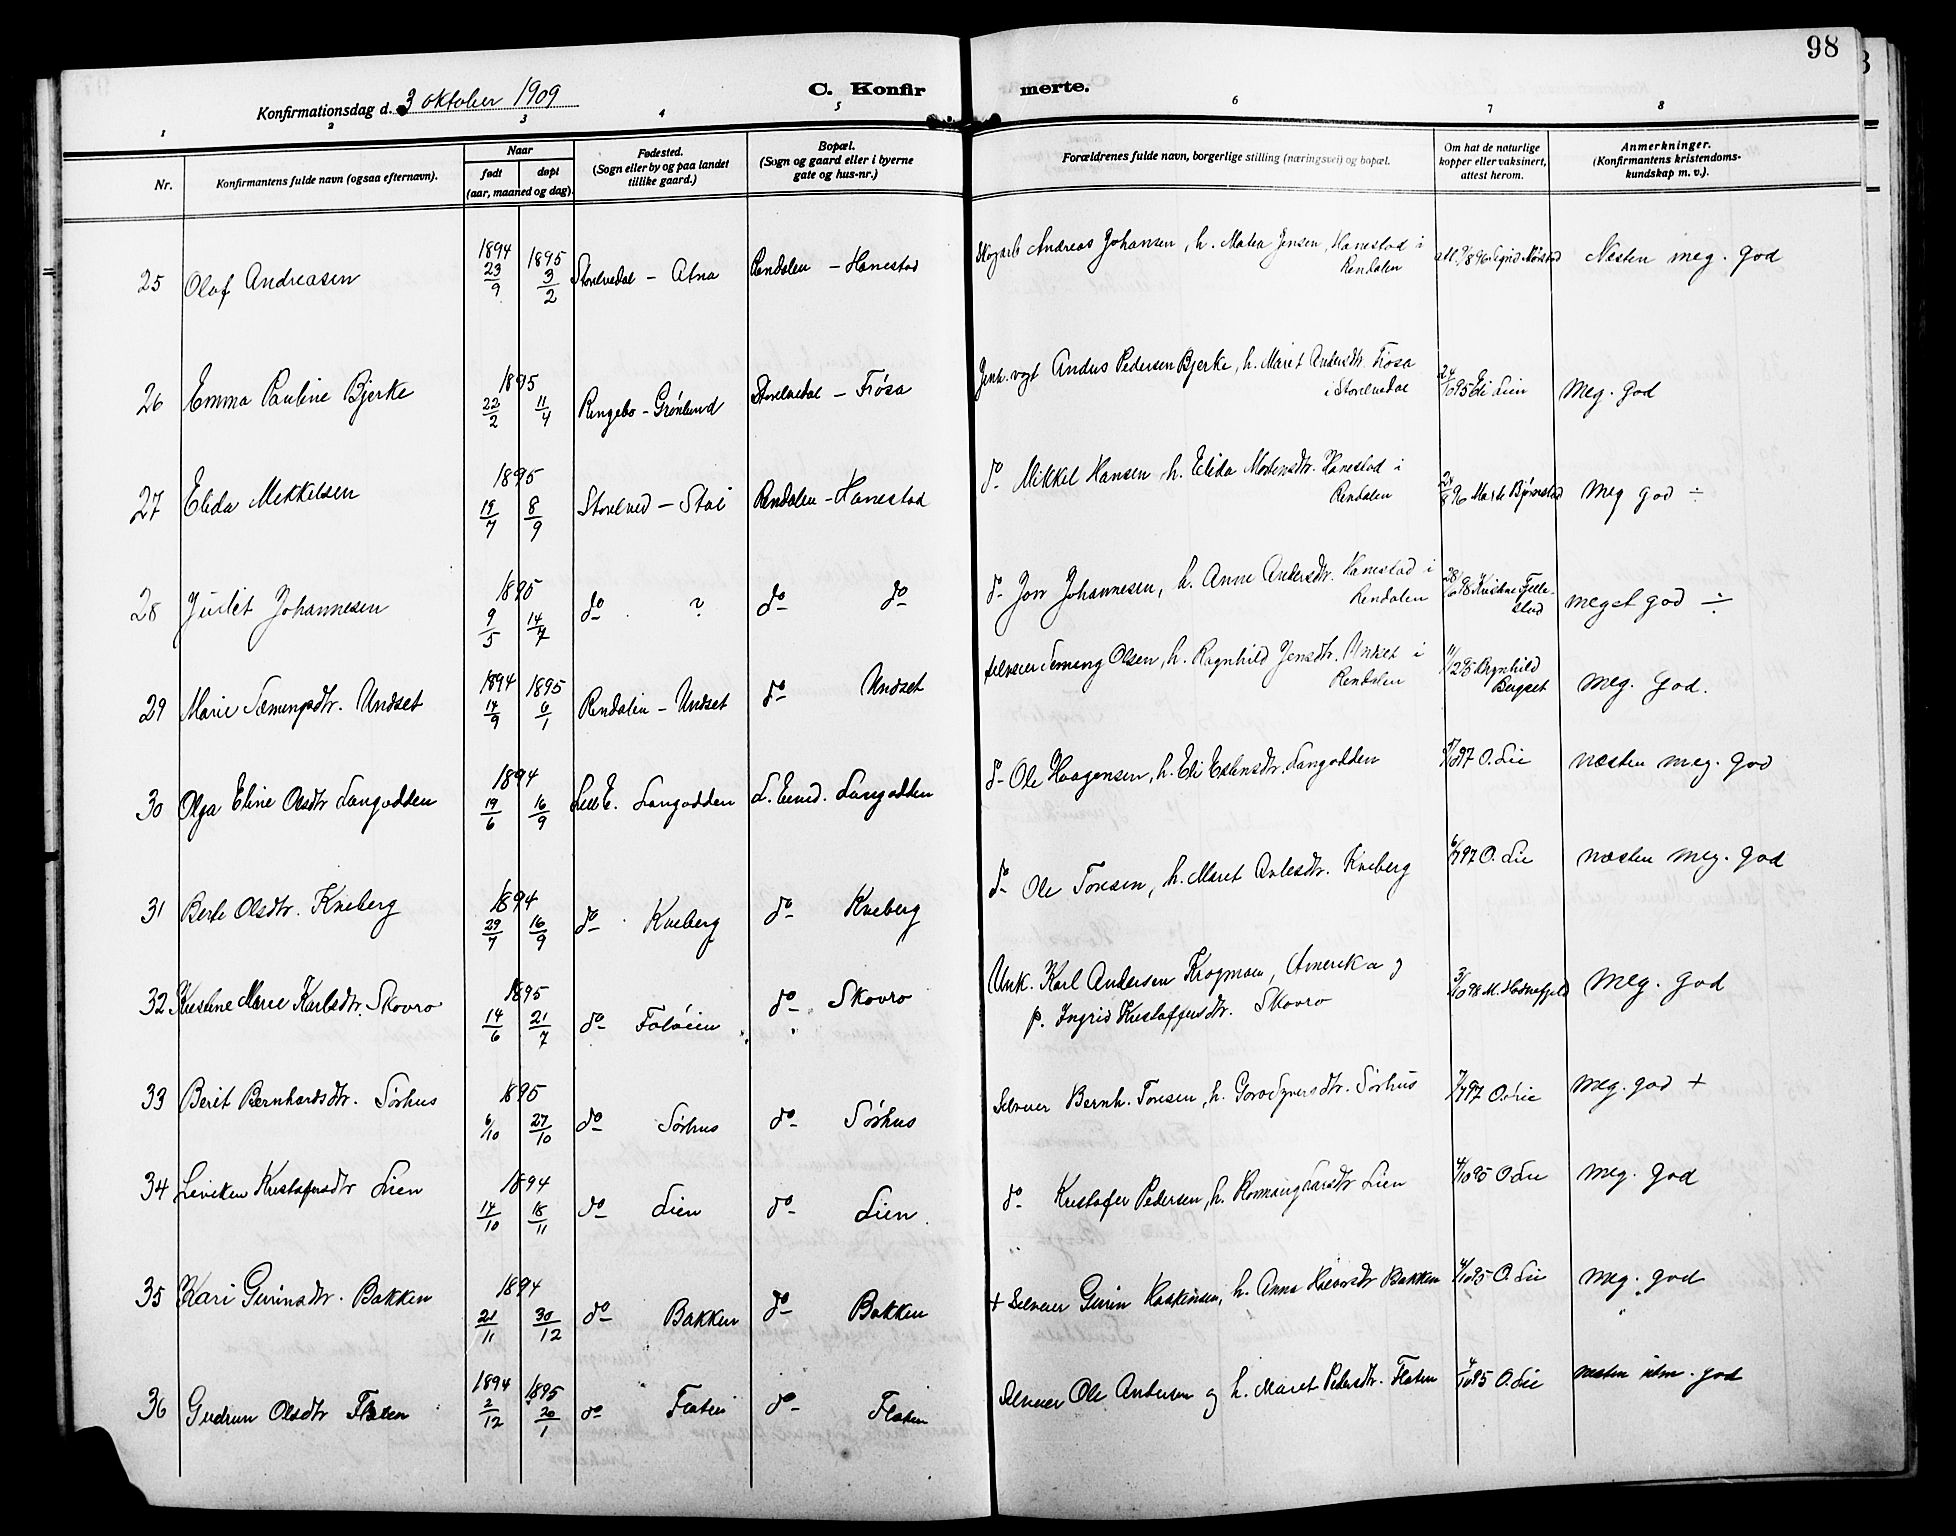 98
Konfirmationsdag d. 3 oktober 1909
C. Konfirmerte.
1 2 3 4 5 6 7 8
Nr.
Konfirmantens fulde navn (ogsaa efternavn).
Naar
født
døpt
(aar, maaned og dag).
Fødested.
(Sogn eller by og paa landet
tillike gaard.)
Bopæl.
(Sogn og gaard eller i byerne
gate og hus-nr.)
Forældrenes fulde navn, borgerlige stilling (næringsvei) og bopæl.
Om hat de naturlige
kopper eller vaksinert,
attest herom.
Anmerkninger.
(Konfirmantens kristendoms-
kundskap m. v.).
25 Olaf Andreasen 1894 23/9 1895 3/2 Storelvedal - Atna Rendalen - Hanestad Andreas Johansen, h. Matea Jensen, Hanestad i
Rendalen Næsten meg. god
26 Emma Pauline Bjerke 1895 22/2 11/4 Ringebo - Grønlund Storelvedal - Frøsa Jernb. vogt Andus Pedersen Bjerke, h. Maret Andersdtr. Frøsa
i Storelvedal 24/10 95 Eli Lien Meg. god
27 Elida Mikkelsen 1895 19/7 8/9 Storelved - Stai Rendalen - Hanestad do Mikkel Hansen h. Elida Mortensdtr. Hanestad i
Rendalen 24/8 96 Marte Bjørnstad Meg god ÷
28 Juliet Johannesen 1895 9/5 14/7 do ? do do do Jon Johannesen, h. Anne Andersdtr. Hanestad i
Rendalen meget god ÷
29 Marie Sæmingsdtr. Undset 1894 14/9 1895 6/1 Rendalen - Undset do Undset Selveier Semang Olsen, h. Ragnhild Jensdtr. Unket i
Rendalen 11/12 95 Ragnhild
Bergset meg. god.
30 Olga Eline Olsdtr Langodden 1894 19/6 16/9 Lille E. Langodden L. Elved. Langodden do Ole Haagensen, h. Eli Estensdtr. Langodden 97 O. Lie næsten meg. god
31 Berte Olsdtr. Kveberg 1894 29/7 16/9 do Kveberg do Kveberg do Ole Toresen, h. Maret Avlesdtr. Kveberg 6/7 97 O. Lie næsten meg. god
32 Kristine Marie Karlsdtr. Skovro 1895 14/6 21/7 do Foløien do Skovro Unk. Karl Andersen Krogmoen, Amerika og
p. Ingrid Kristoffersdtr. Skovro 3/10 98 Meg. god
33 Berit Bernhardsdtr. Sørhus 1895 6/10 27/10 do Sørhus do Sørhus Selveier Bernh. Toresen, h. Sørhus 7/7 97 O. Lie meg. god +
34 Kristofersdtr Lien 1894 14/10 18/11 do Lien do Lien. do Kristofer Pedersen, h. Lien 4/10 95 O Lie meg. god
35 Kari Gurinsdtr. Bakken 1894 21/11 30/12 do Bakken do Bakken + Selveier Gurin Haakensen, h. Anna Bakken 4/10 95 O. Lie meg. god
36 Gudrun Olsdtr Flaten 1894 2/12 1895 20/1 do Flaten do Flaten Selveier Ole Andersen og h. Maret Pedersdtr. Flaten 4/10 95 O. Lie næsten utm. god